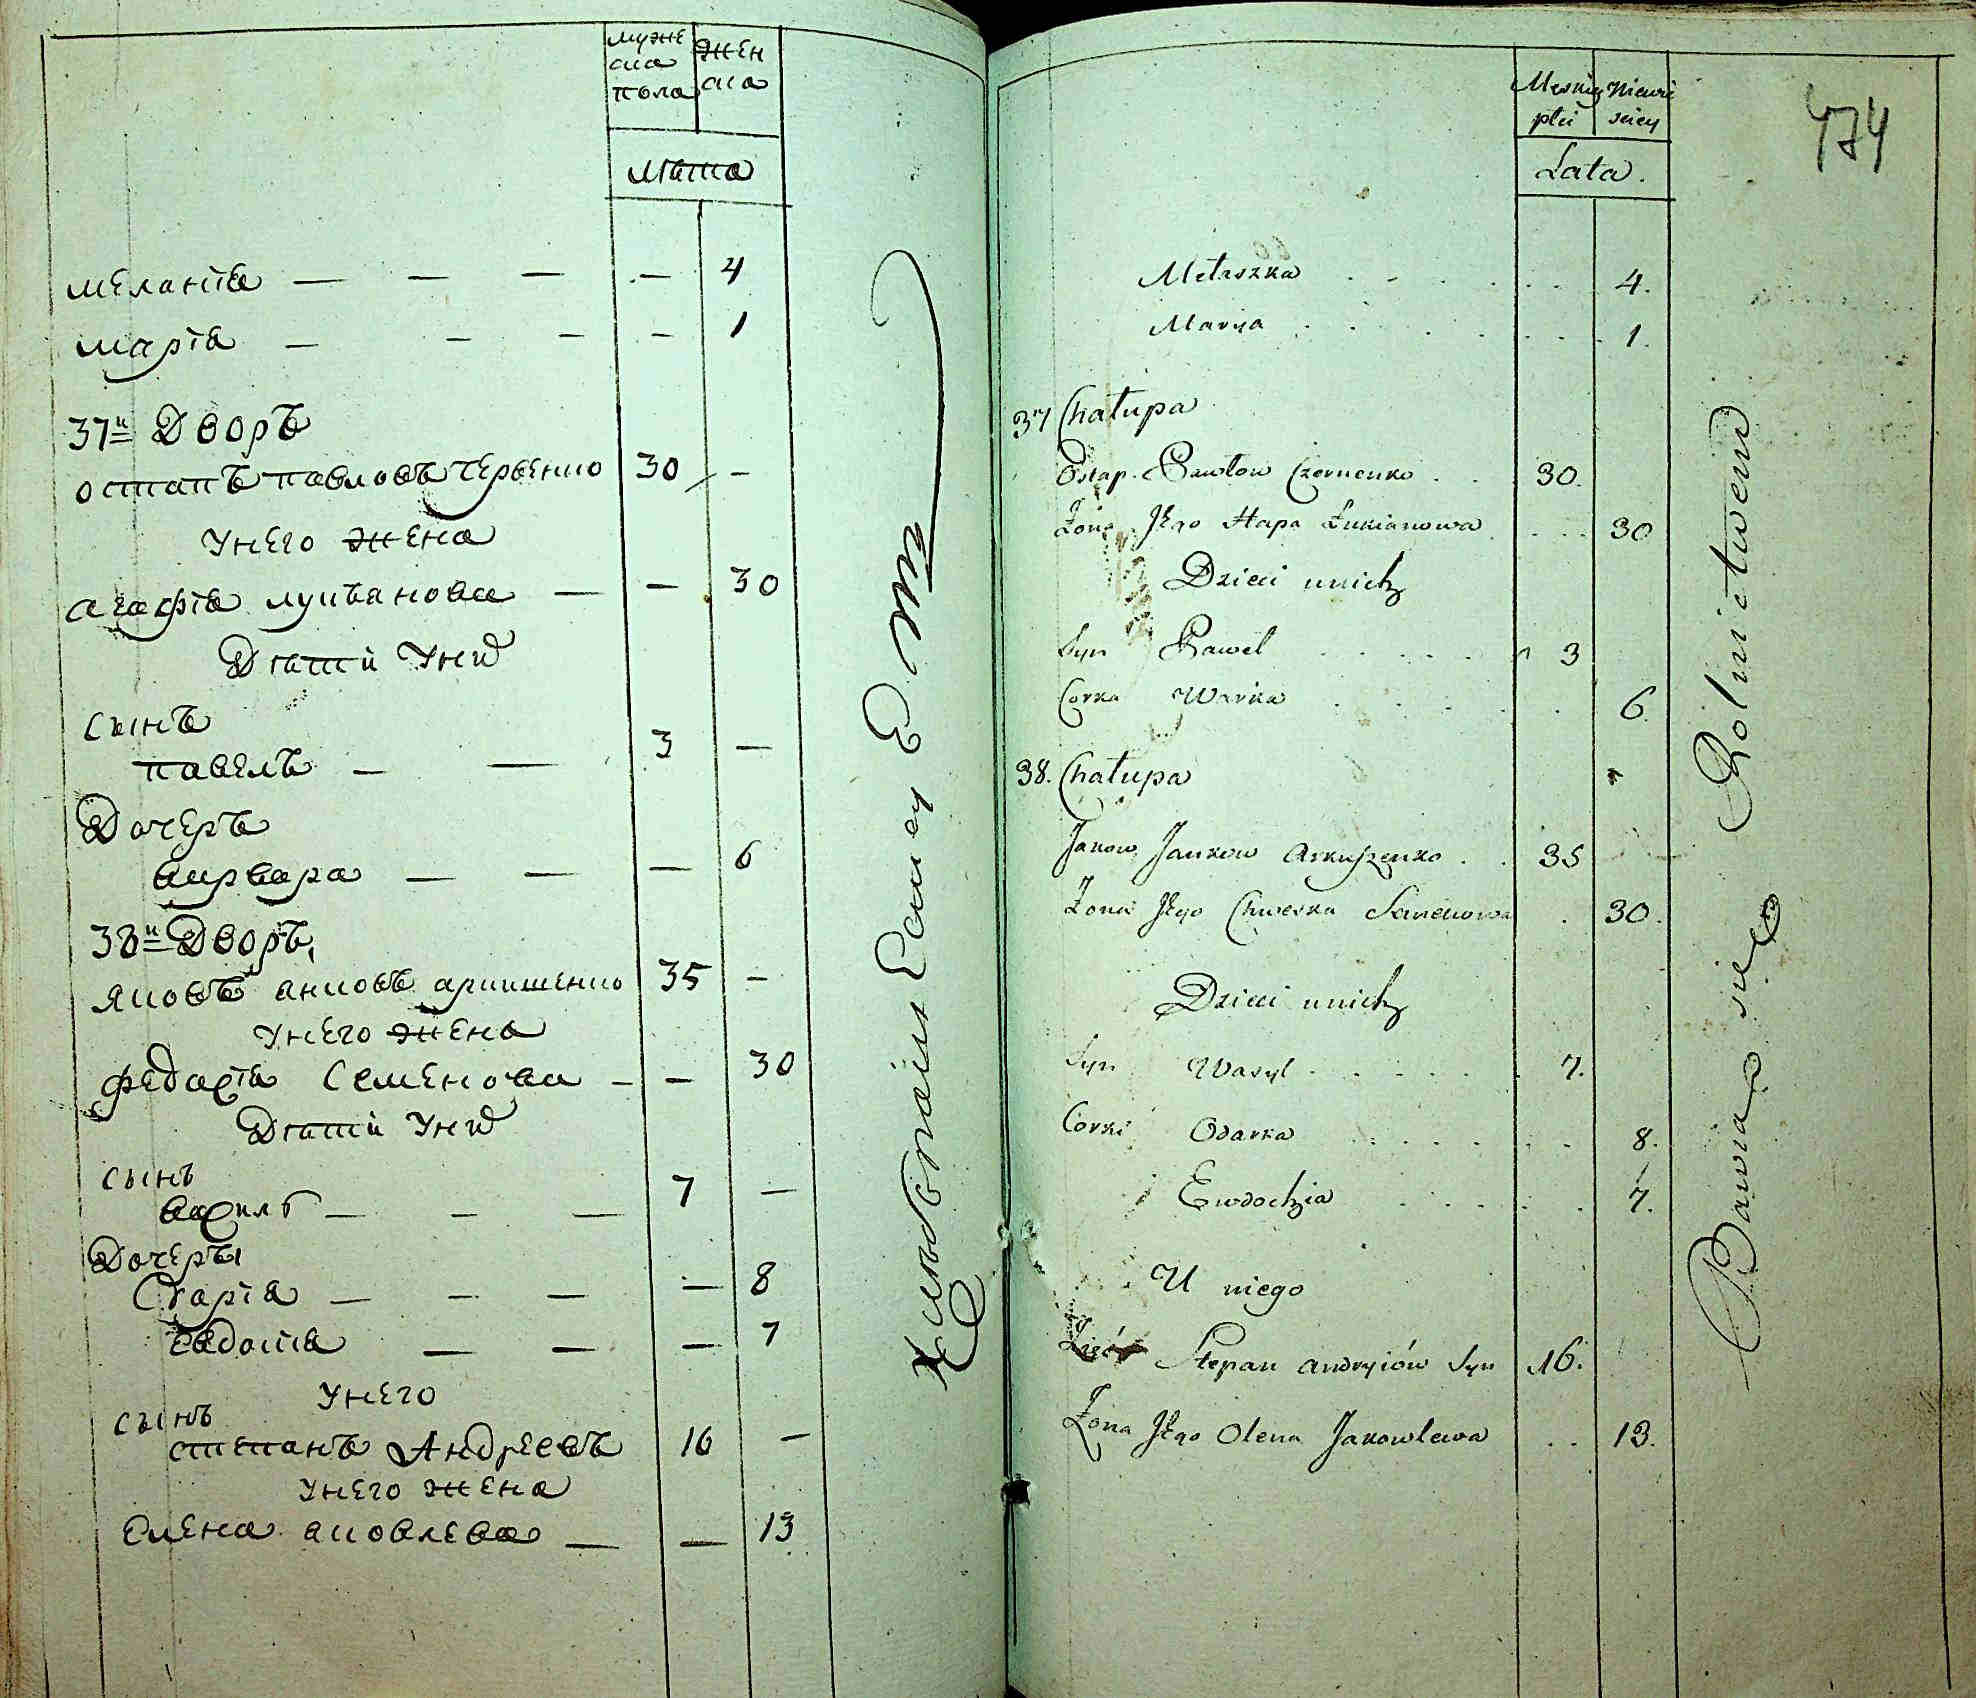 муже
ска
пола
жен
ска
лѣта
меланія — — — — 4
марія — — — — 1
37й Дворъ
остапъ павловъ черненко 30 —
Унего жена
агафія лукьянова — — 30
Дѣти Унихъ
сынъ
павелъ — — 3 —
Дочеръ
варвара — — — 6
38й Дворъ
яковъ яковъ аркушенко 35 —
Унего жена
федосія Семенова — — 30
Дѣти Унихъ
сынъ
василь — — — 7 —
Дочеръ
Дарія — — — — 8
евдокія — — — 7
Унего
сынъ
степанъ Андреевъ 16 —
Унего жена
Елена яковлева — — 13
Męskiey
płci
Niewie
sciey
Lata.
474
Melaszka 4.
Marya 1.
37 Chałupa
Ostap Pawłow Czernenko 30.
Żona Jego Hapa Łukianowa 30
Dzieci unich
Syn Paweł 3
Corka Warka 6.
38. Chałupa
Jakow Jankow Arkuszenko 35
Żona Jego Chweska Semenowa 30.
Dzieci unich
Syn Wasyl 7.
Corki Odarka 8.
Ewdochia 7.
U niego
Zięć Stepan Andryiów Syn 16.
Żona Jego Olena Jakowlewa 13.
Bawią się Rolnictwem